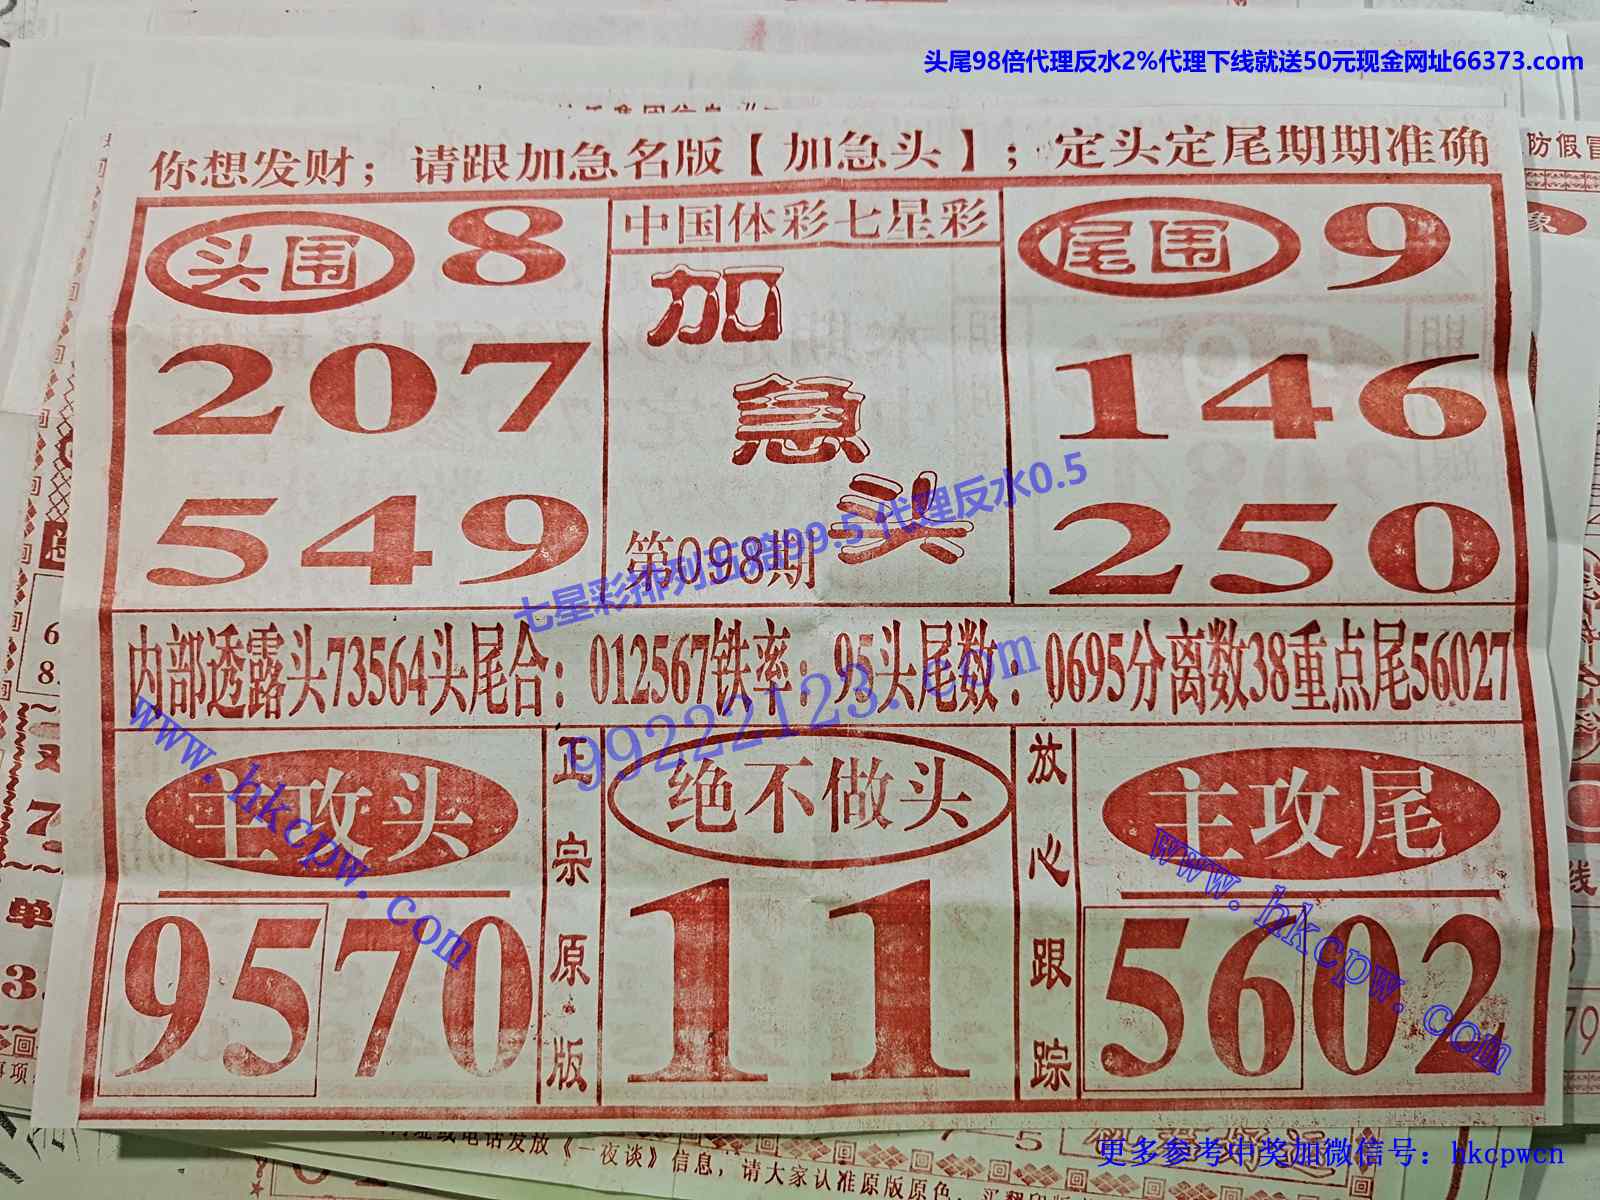 头尾98倍代理反水2%代理下线就送50元现金网址66373.com
你想发财；请跟加急名版【加急头】；定头定尾期期准确
防假冒
头围 8
207
549
中国体彩七星彩
加
急
头
第098期
尾围 9
146
250
七星彩排列五赔99.5 代理反水0.5
内部透露头73564头尾合：012567铁率：95头尾数：0695分离数38重点尾56027
99222123.com
www.hkcpw.com
主攻头
9570
正宗原版
绝不做头
11
放心跟踪
主攻尾
5602
www.hkcpw.com
单
线
发放《一夜谈》信息，请大家认准原版原色
更多参考中奖加微信号：hkcpwcn